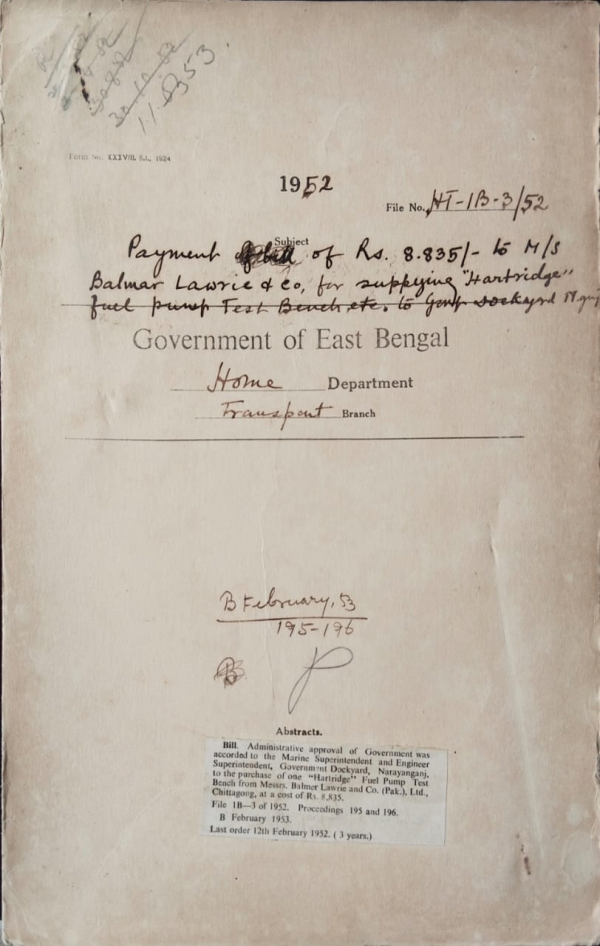 30-10-52
11-8353
Form No. XXXVIII, S.I., 1924
1952
File No. HT-1B-3/52
Subject
Payment of Rs. 8.835/- to M/S
Balmar Lawrie & Co, for supplying "Hartridge"
fuel pump Test Bench etc. to Govt Dockyard N'gunj
Government of East Bengal
Home Department
Transport Branch
B February, 53
195-196
B
Abstracts.
Bill. Administrative approval of Government was
accorded to the Marine Superintendent and Engineer
Superintendent, Government Dockyard, Narayanganj,
to the purchase of one "Hartridge" Fuel Pump Test
Bench from Messrs. Balmer Lawrie and Co. (Pak.), Ltd.,
Chittagong, at a cost of Rs. 8,835.
File 1B—3 of 1952. Proceedings 195 and 196.
B February 1953.
Last order 12th February 1952. ( 3 years.)